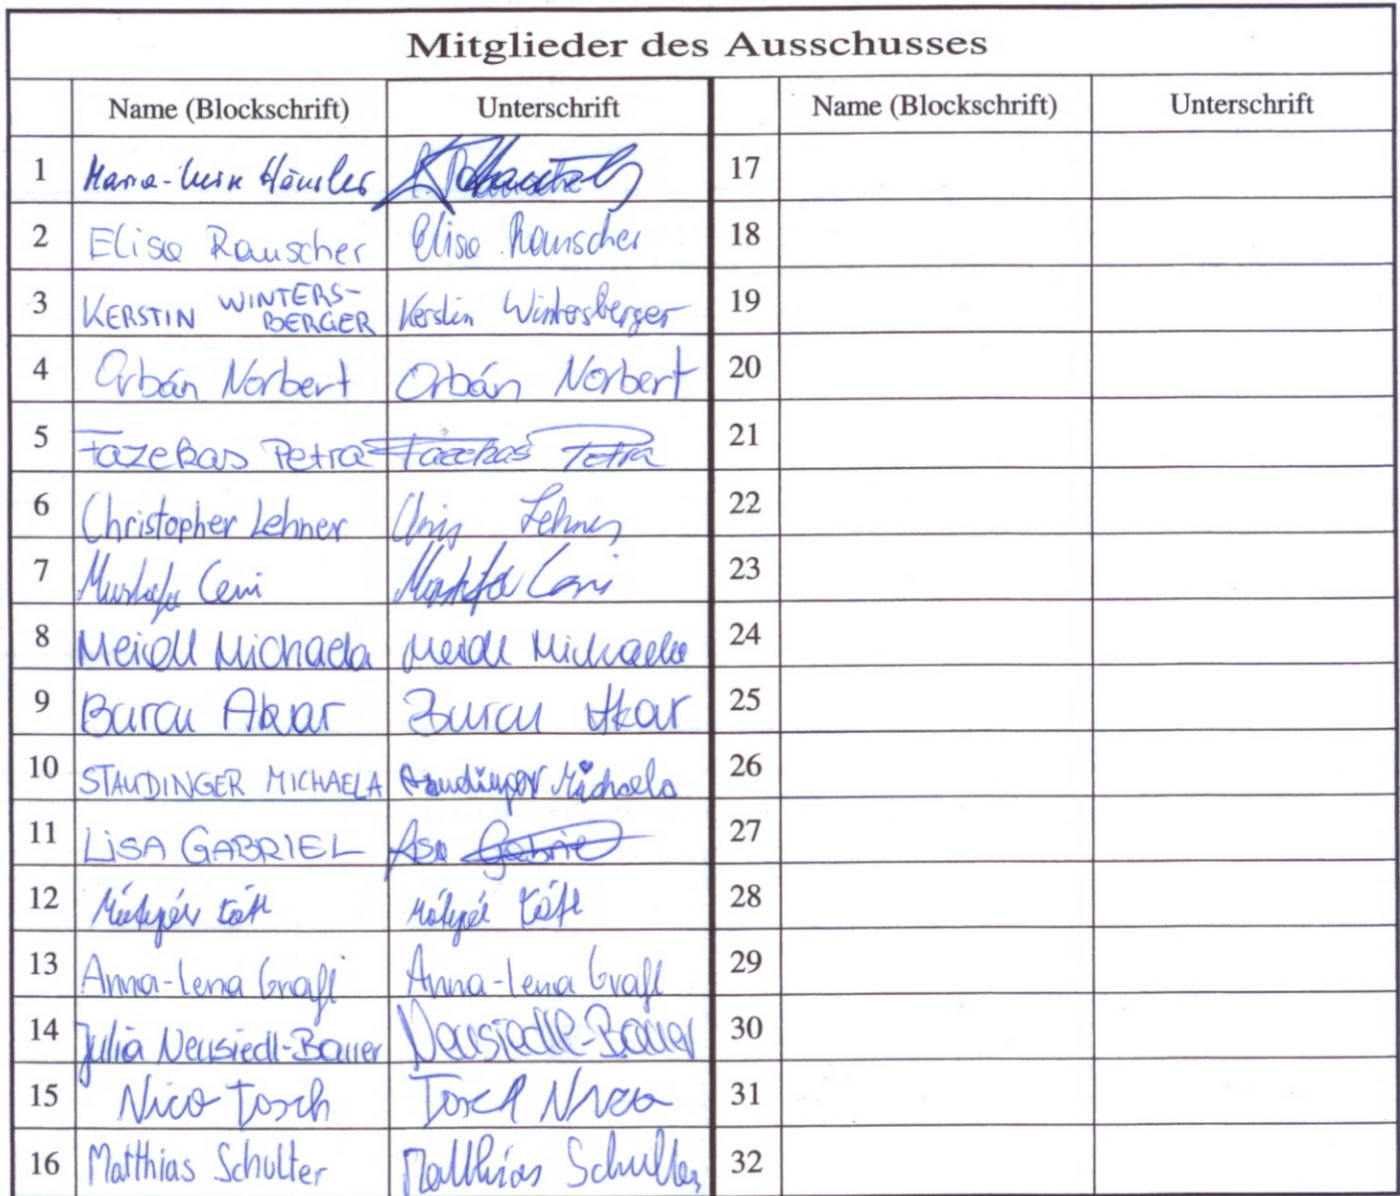 Mitglieder des Ausschusses
Name (Blockschrift) Unterschrift Name (Blockschrift) Unterschrift
1 17
2 Elisa Rauscher Elisa Rauscher 18
3 KERSTIN WINTERS-BERGER Kerstin Wintersberger 19
4 Orbán Norbert Orbán Norbert 20
5 Fazekas Petra Fazekas Petra 21
6 Christopher Lehner Chris Lehner 22
7 Mustafa Mustafa 23
8 Meidl Michaela Meidl Michaela 24
9 Burcu Akar Burcu Akar 25
10 STAUDINGER MICHAELA Staudinger Michaela 26
11 LISA GABRIEL Lisa Gabriel 27
12 28
13 Anna-Lena Grafl Anna-Lena Grafl 29
14 Julia Neusiedl-Bauer Neusiedl-Bauer 30
15 Nico Tosch Tosch Nico 31
16 Matthias Schulter Matthias Schulter 32